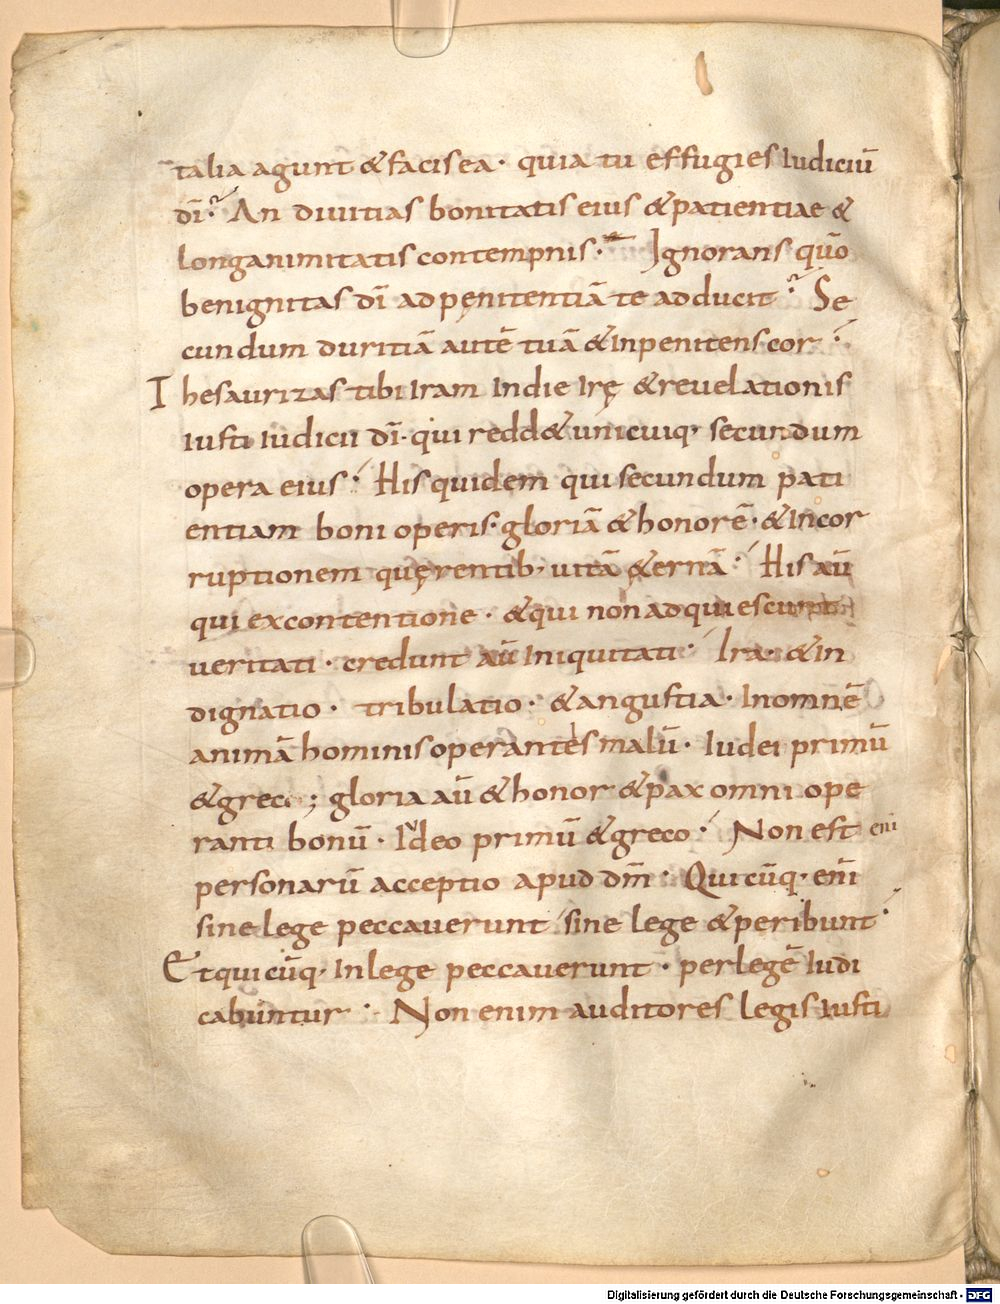 talia agunt & facis ea · quia tu effugies Iudiciū
dī · An diuitias bonitatis eius & patientiae &
longanimitatis contempnis · Ignorans qūo
benignitas dī ad pęnitentiā te adducit · Se
cundum duritiā autē tuā & Inpenitens cor ·
Thesaurizas tibi Iram In die Irę & reuelationis
Iusti Iudicii dī · qui redd& unicuiq· secundum
opera eius · His quidem qui secundum pati
entiam boni operis · gloriā & honorē · & Incor
ruptionem quęrentib· uitā &ernā · His aū
qui ex contentione · & qui non adquiescunt
ueritati · credunt aū Iniquitati · Ira · & In
dignatio · tribulatio · & angustia · In omnē
animā hominis operantes malū · Iudei primū
& greci ; gloria aū & honor & pax omni ope
ranti bonū · Iudeo primū & greco · Non est eni
personarū acceptio apud dm̄ · Quicūq· enī
sine lege peccauerunt sine lege & peribunt ·
Et quicūq· In lege peccauerunt · per legē Iudi
cabuntur · Non enim auditores legis Iusti
Digitalisierung gefördert durch die Deutsche Forschungsgemeinschaft - DFG